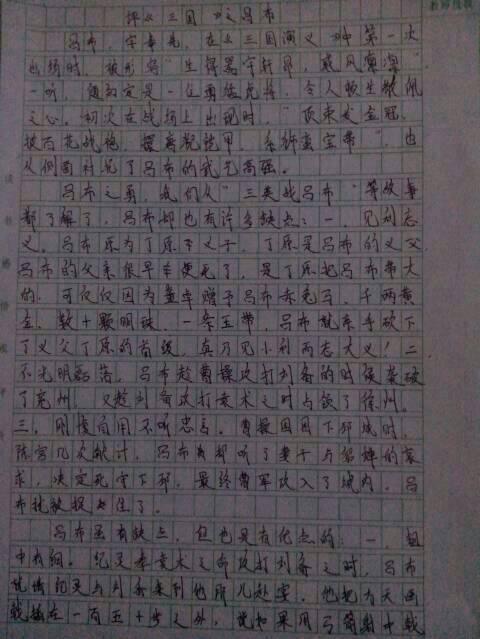 评《三国》之吕布
吕布，字奉先，在《三国演义》中第一次
出场时，被形容“生得器宇轩昂，威风凛凛”
一听，便知定是一位勇猛，令人顿生敬佩
之心。初次在战场上出现时，“顶束发金冠，
披百花战袍，擐唐猊铠甲，系狮蛮宝带”，也
从侧面衬托了吕布的武艺高强。
吕布之勇，我们从“三英战吕布”等故事
都了解了，吕布却也有许多缺点：一，见利忘
义。吕布原为丁原义子，丁原是吕布的义父，
吕布的父亲很早死了，是丁原把吕布带大
的，可仅仅因为董卓赠予吕布赤兔马，千两黄
金，数十颗明珠，一条玉带，吕布就亲手砍下
了义父丁原的首级，真乃见小利而忘大义！二
不光明磊落，吕布趁曹操攻打的时候袭破
了兖州，又趁刘备攻打袁术之时占领了徐州。
三，刚愎自用不听忠言。曹操围困下邳城时，
陈宫几次献计，吕布却听了妻子与貂蝉的哀
求，决定死守下邳，最终曹军攻入了城内，吕
布就被捉住了。
吕布虽有缺点，但也是有优点的：一，粗
中有细。纪灵奉袁术之命攻打刘备之时，吕布
纪灵与刘备来到他那儿赴宴，他把方天画
戟插在一百五十步之外，说如果用弓箭射中戟